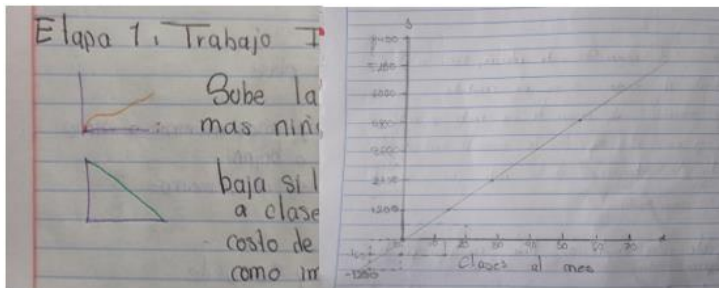 Etapa 1. Trabajo I
Sube la
mas niñ
baja si l
a clase
costo de
como im
$
7200
6000
4800
3600
2400
1200
10 20 30 40 50 60 70
-1200
Clases al mes